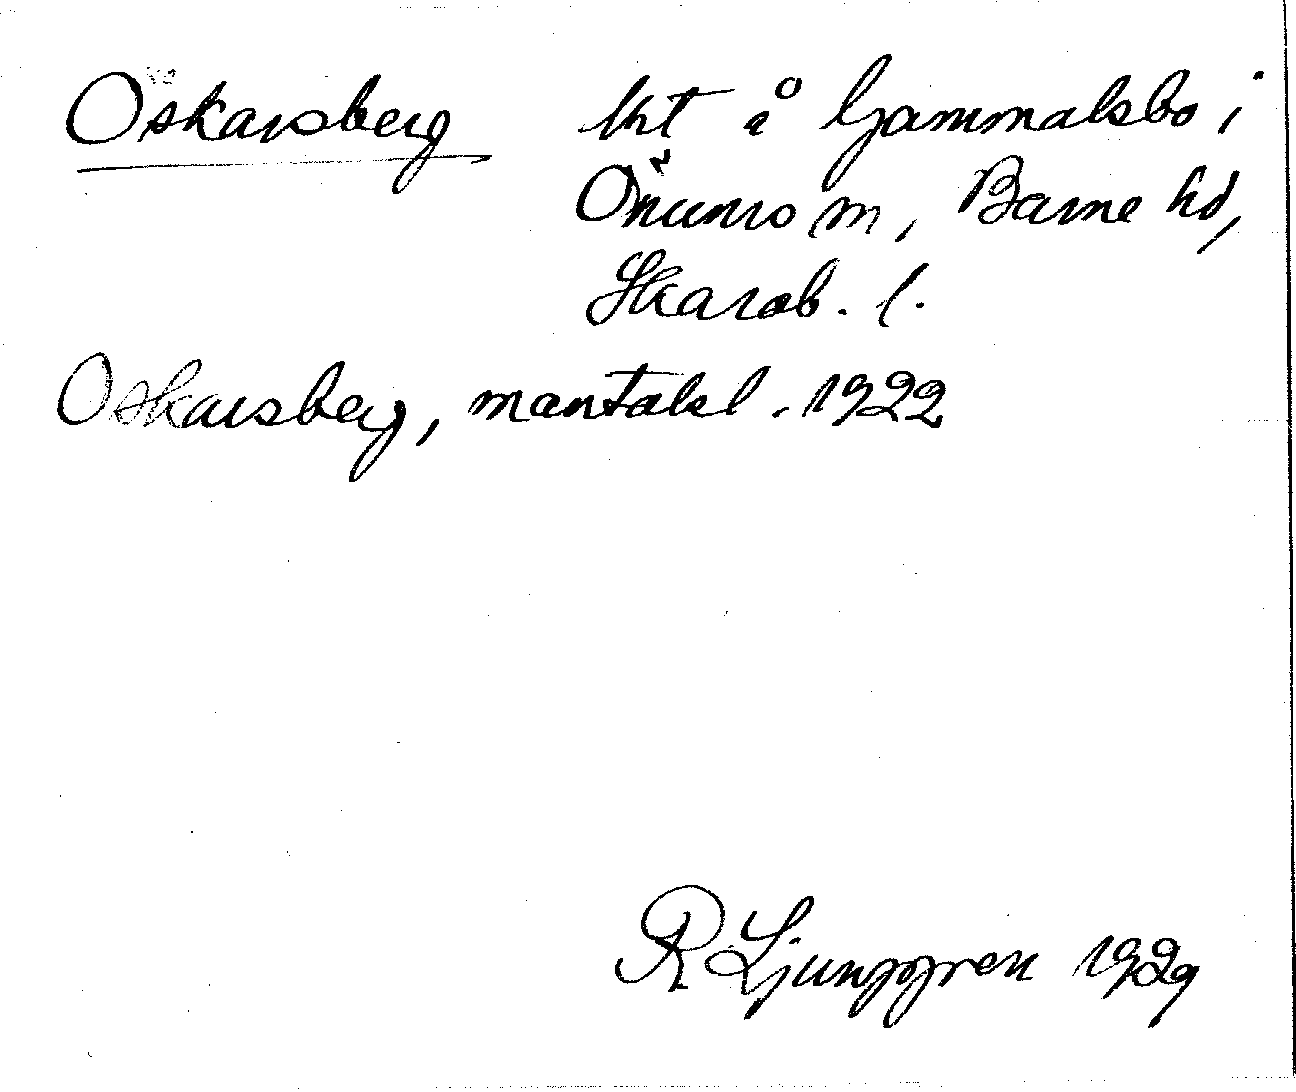 Oskarsberg lht å Gammalsbo i
Önums sn, Barne hd,
Skarab. l.
Oskarsberg, mantalsl. 1922
R Ljunggren 1929